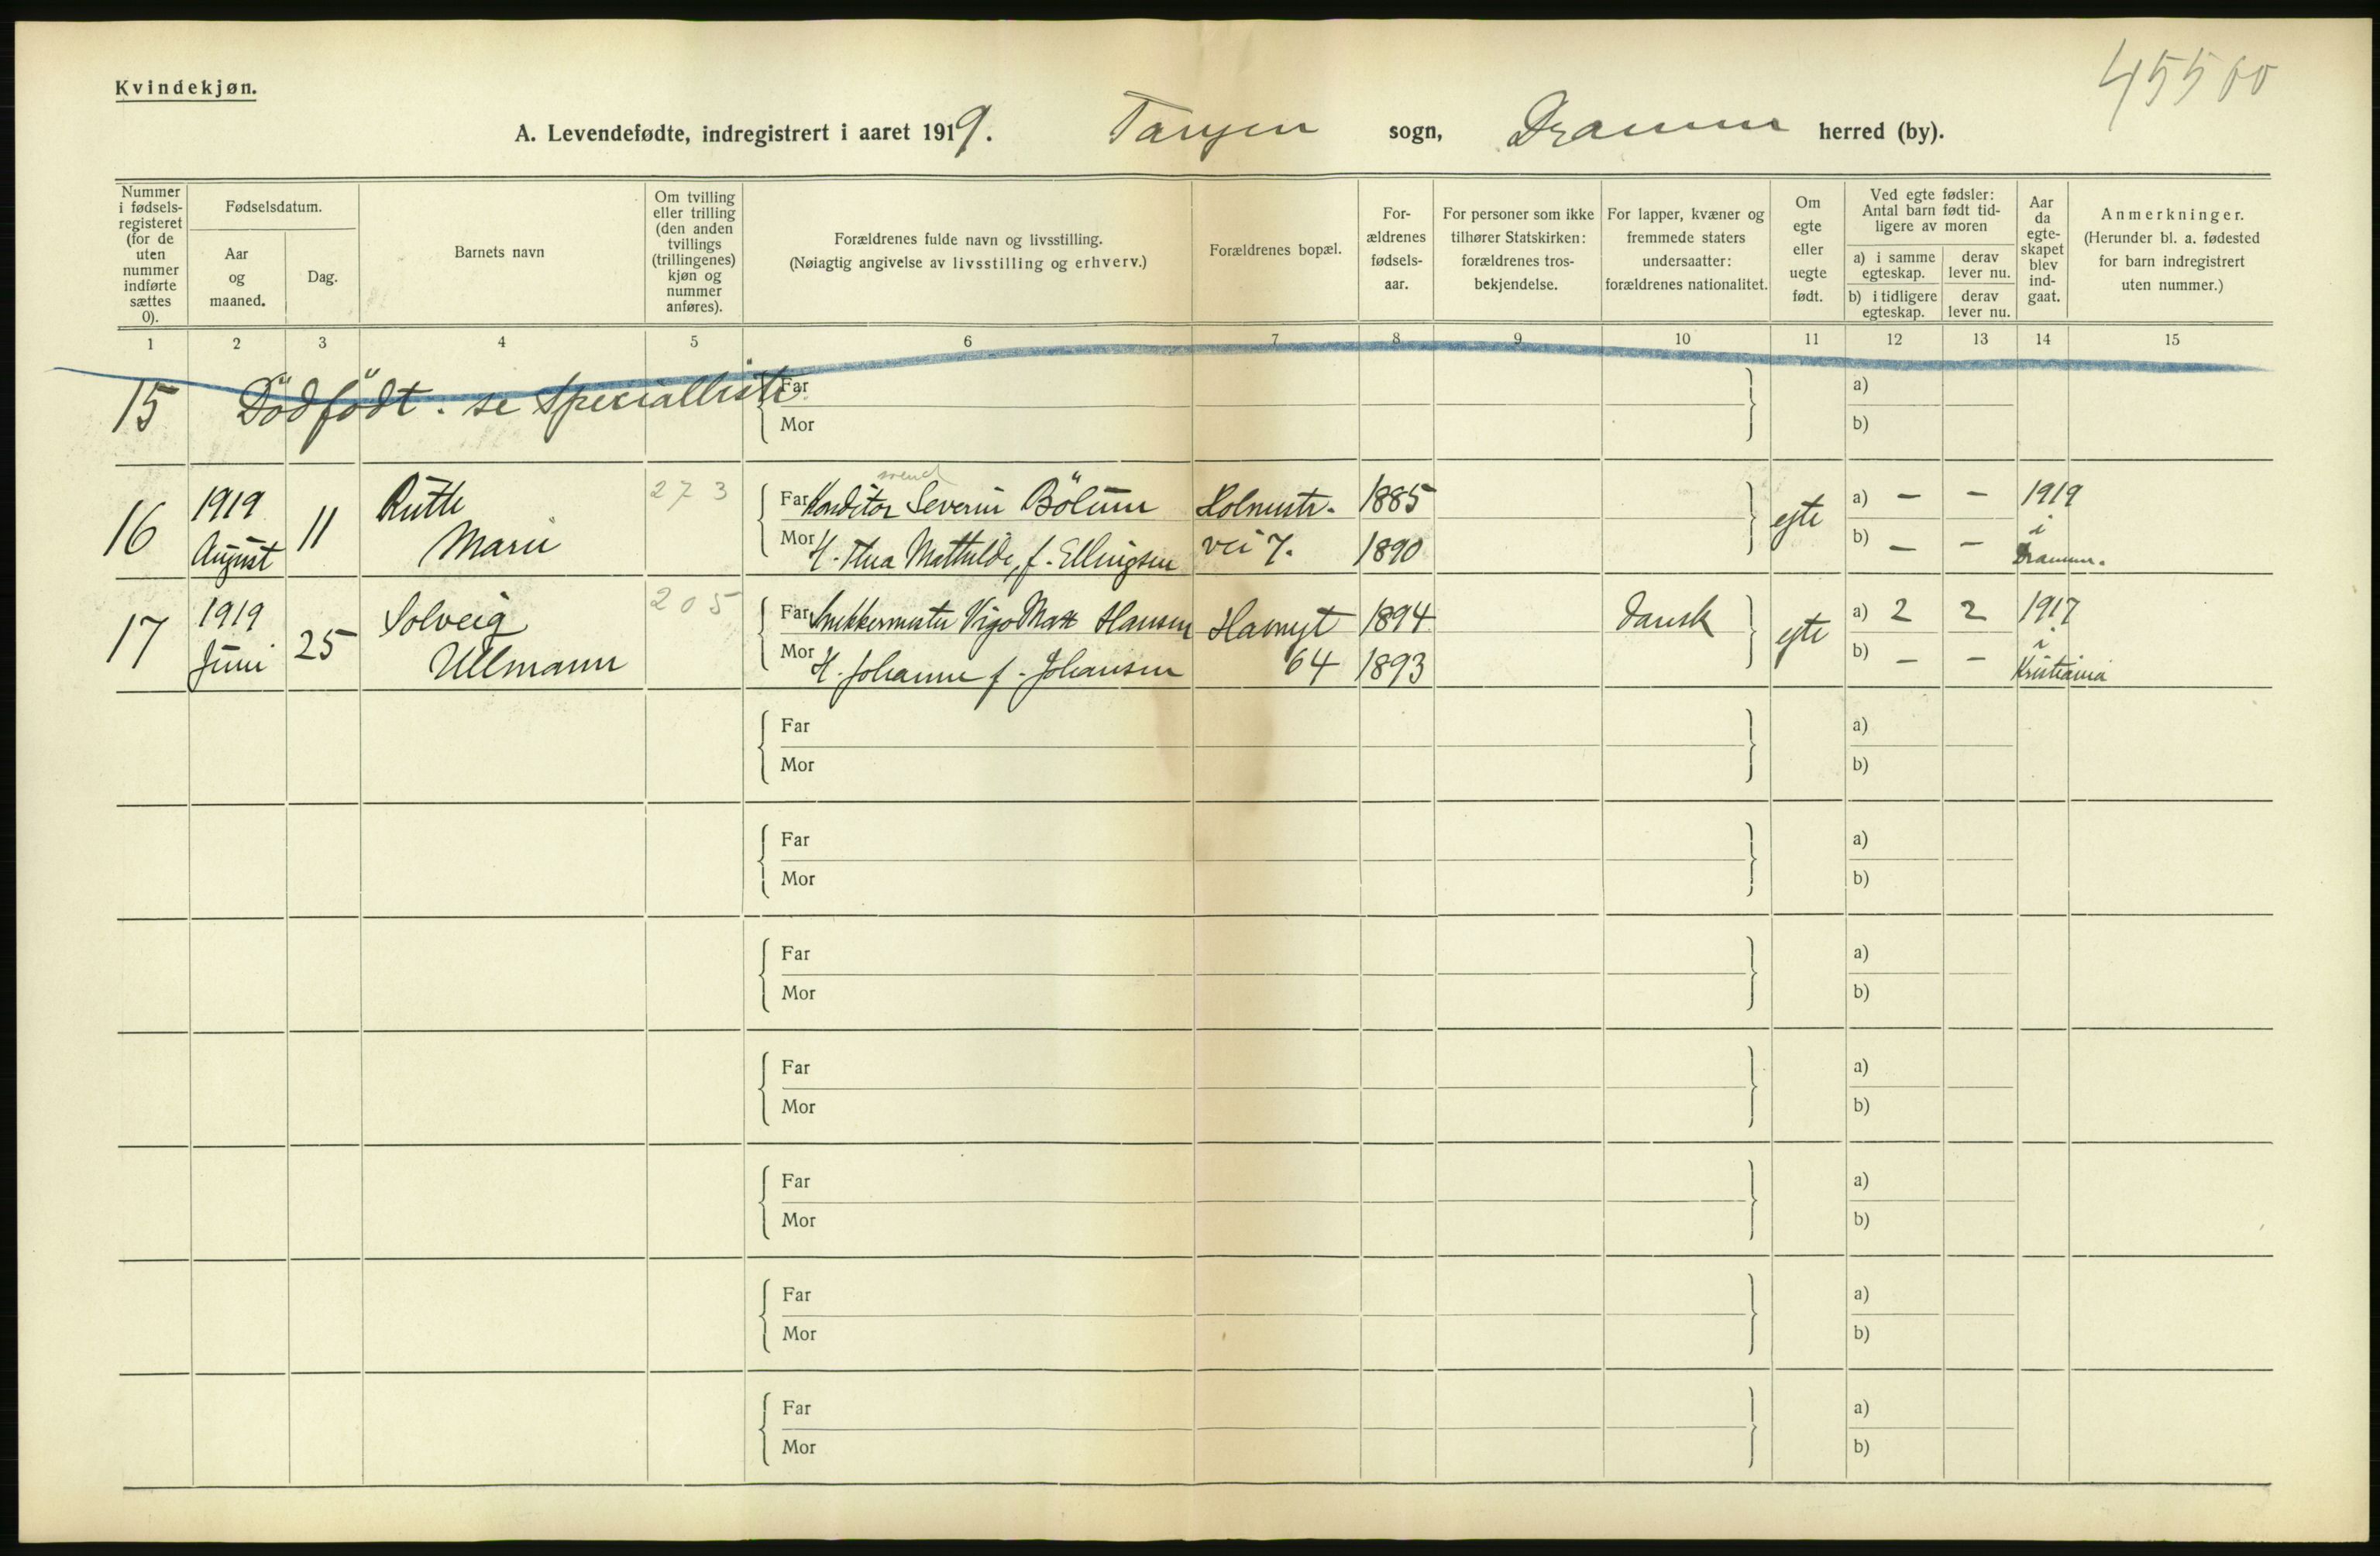 Kvindekjøn.
45500
A. Levendefødte, indregistrert i aaret 1919. Tangen sogn, Drammen herred (by).
Nummer i fødselsregisteret (for de uten nummer indførte sættes 0).
Fødselsdatum.
Aar og maaned.
Dag.
Barnets navn
Om tvilling eller trilling (den anden tvillings (trillingenes) kjøn og nummer anføres).
Forældrenes fulde navn og livsstilling.
(Nøiagtig angivelse av livsstilling og erhverv.)
Forældrenes bopæl.
For-ældrenes fødsels-aar.
For personer som ikke tilhører Statskirken: forældrenes tros-bekjendelse.
For lapper, kvæner og fremmede staters undersaatter: forældrenes nationalitet.
Om egte eller uegte født.
Ved egte fødsler: Antal barn født tid-ligere av moren
a) i samme egteskap.
derav lever nu.
b) i tidligere egteskap.
derav lever nu.
Aar da egte-skapet blev ind-gaat.
Anmerkninger.
(Herunder bl. a. fødested for barn indregistrert uten nummer.)
1 2 3 4 5 6 7 8 9 10 11 12 13 14 15
15 Dödfödt. se Specialliste Far a)
Mor b)
273 svend
16 1919 11 Ruth Far Konditor Severin Bölum Holmestr. 1885 egte a) – – 1919
August Marie Mor H. Thea Mathilde, f. Ellingsen vei 7. 1890 b) – – i Drammen.
205
17 1919 25 Solveig Far Snekkermester Vigo Max Hansen Havnegt 1894 Dansk egte a) 2 2 1917
Juni Ullmann Mor H. Johanne f. Johansen 64 1893 b) – – i Kristiania
Far a)
Mor b)
Far a)
Mor b)
Far a)
Mor b)
Far a)
Mor b)
Far a)
Mor b)
Far a)
Mor b)
Far a)
Mor b)